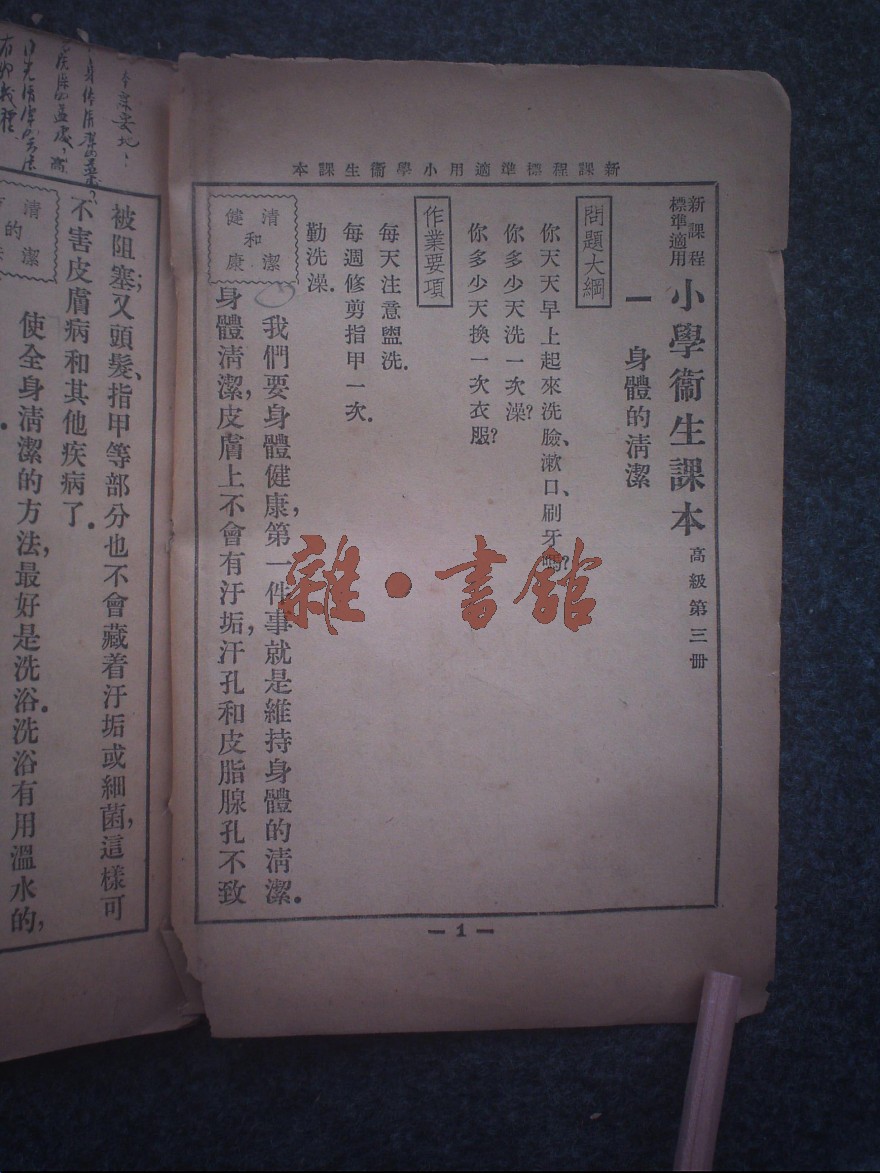 新課程標準適用小學衞生課本
新課程
標準適用
小學衞生課本 高級第三册
一 身體的清潔
問題大綱
你天天早上起來洗臉、漱口、刷牙嗎?
你多少天洗一次澡?
你多少天換一次衣服?
作業要項
每天注意盥洗.
每週修剪指甲一次.
勤洗澡.
清潔
和
健康
我們要身體健康,第一件事就是維持身體的清潔.
身體清潔,皮膚上不會有汙垢,汗孔和皮脂腺孔不致
— 1 —
被阻塞;又頭髮、指甲等部分也不會藏着汙垢或細菌,這樣可
不害皮膚病和其他疾病了.
清潔
的
使全身清潔的方法,最好是洗浴.洗浴有用溫水的,
雜·書館